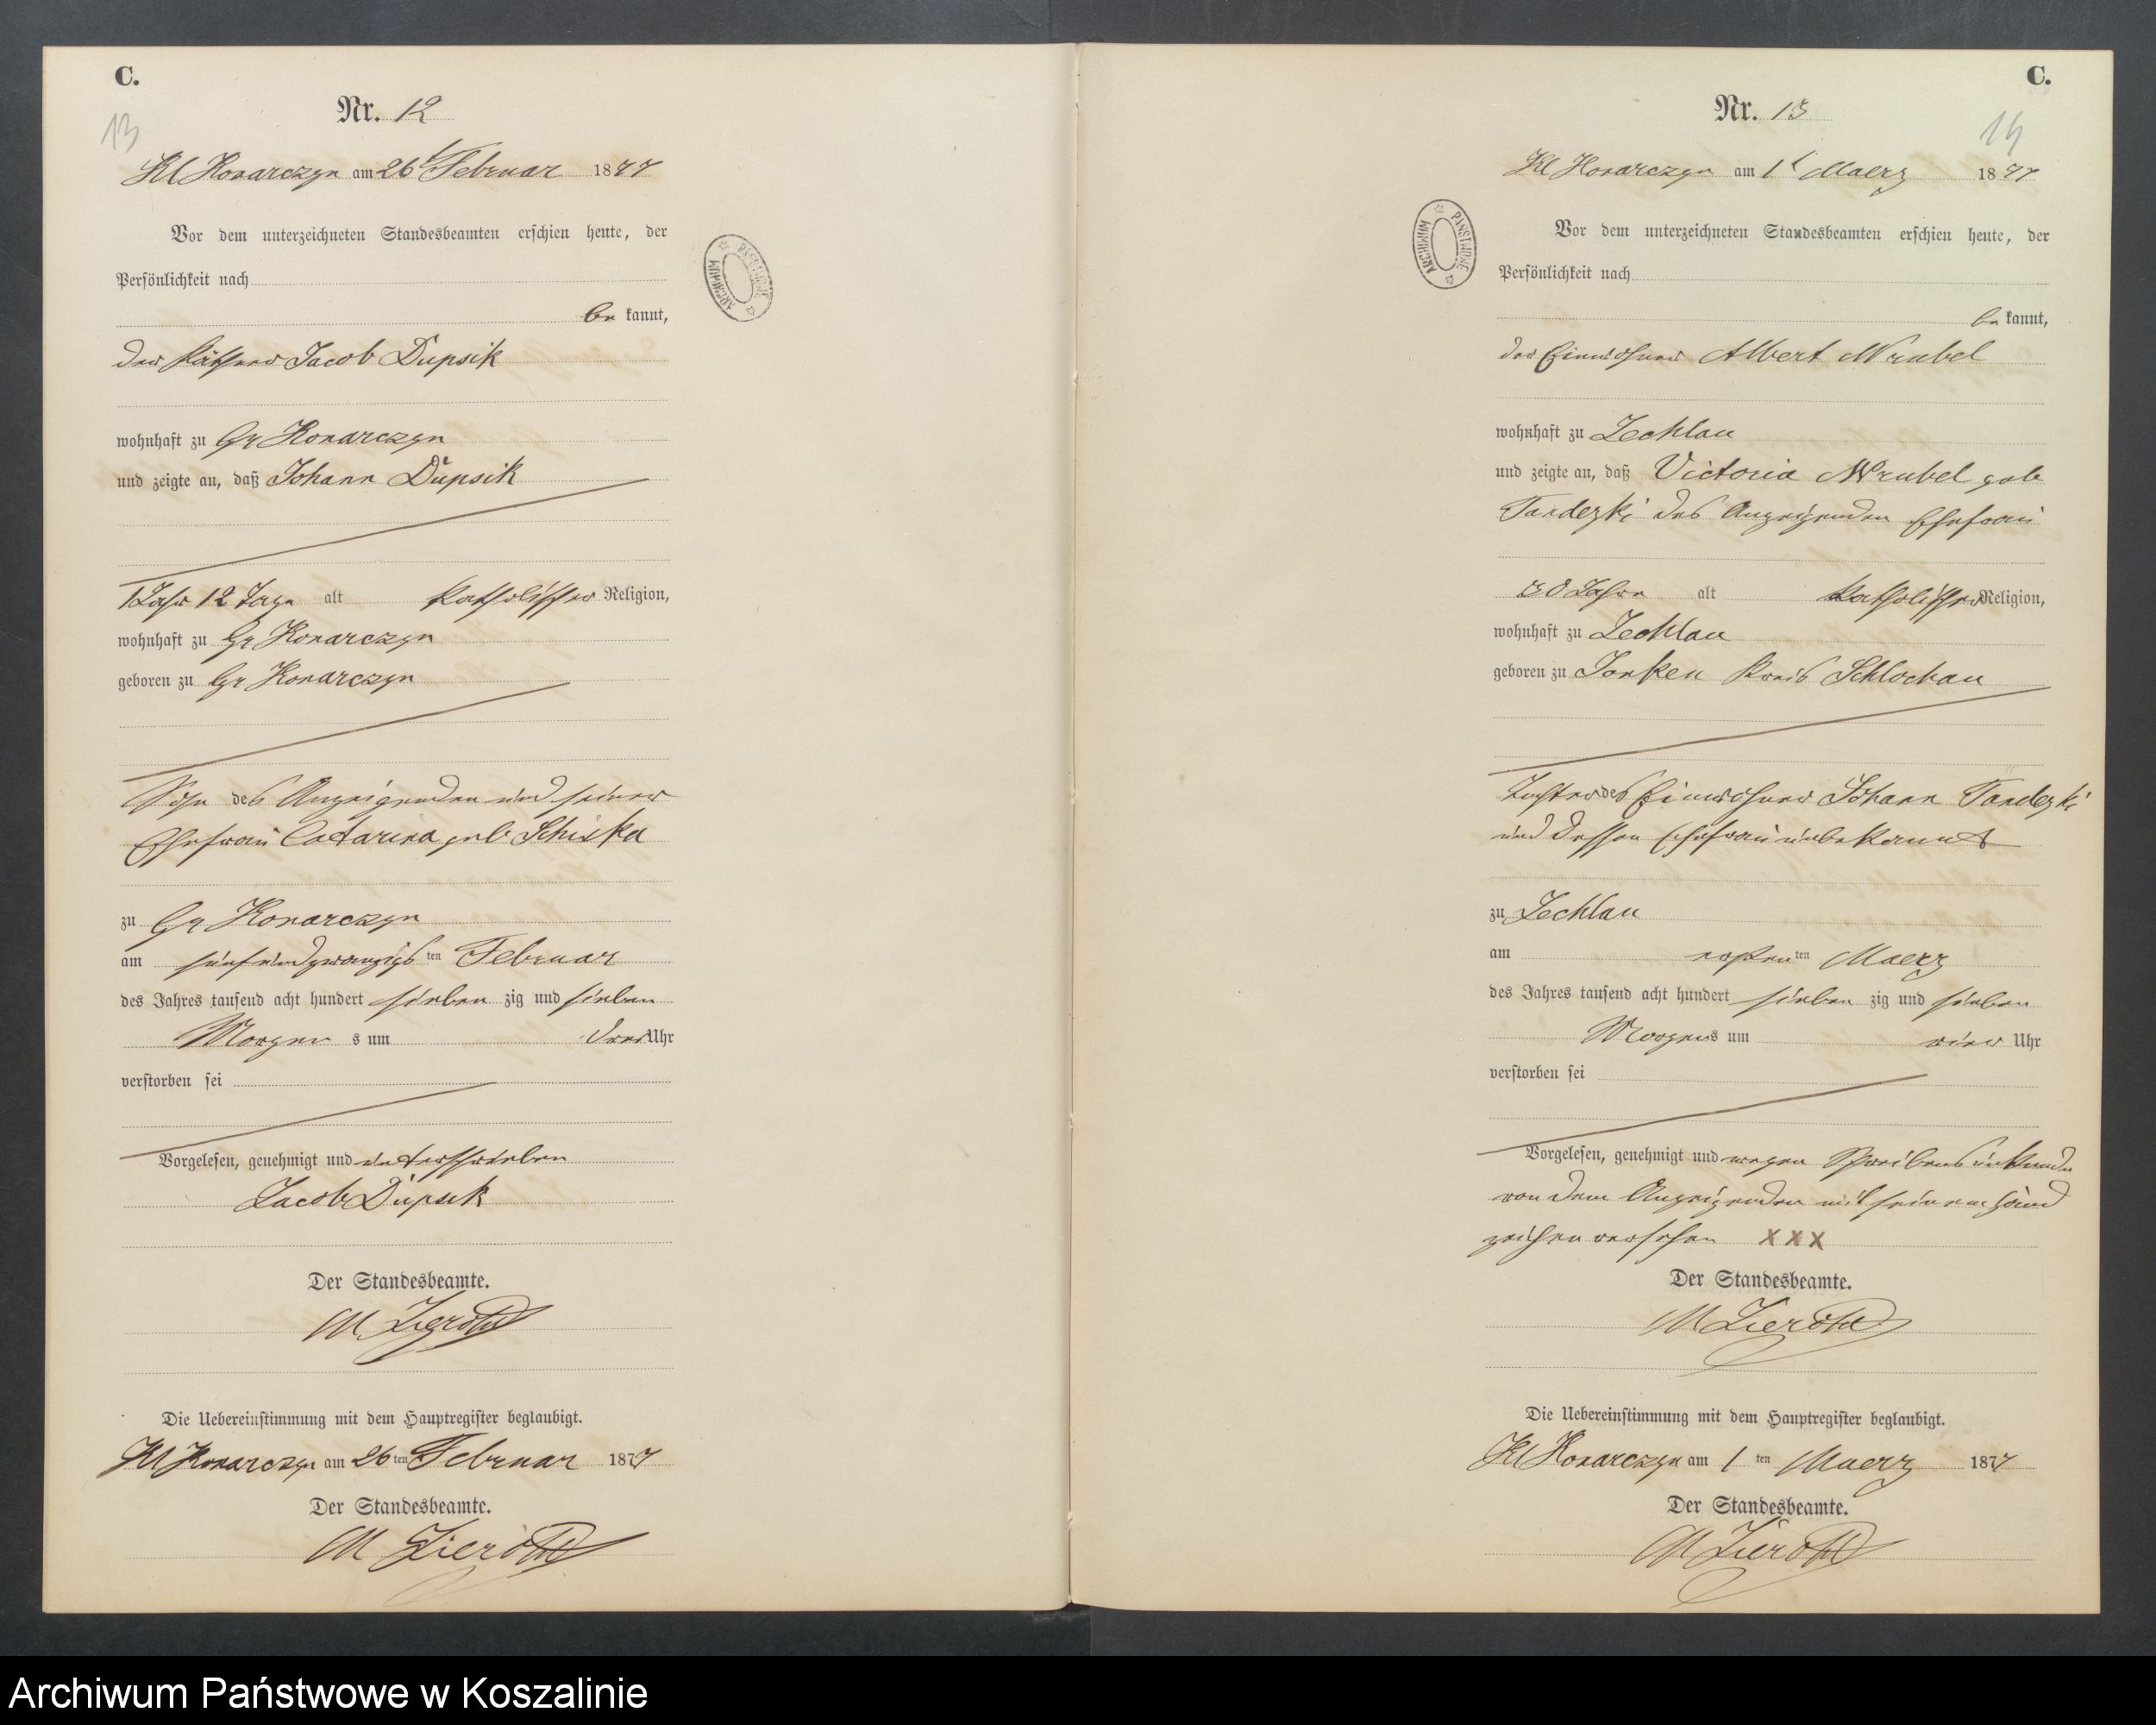 C.
Nr. 12
13
Kl Konarczyn am 26t Februar 1877
Vor dem unterzeichneten Standesbeamten erschien heute, der
Persönlichkeit nach
be kannt,
der Käthner Jacob Dupsik
wohnhaft zu Gr Konarczyn
und zeigte an, daß Johann Dupsik
1 Jahr 12 Tage alt katholischer Religion,
wohnhaft zu Gr Konarczyn
geboren zu Gr Konarczyn
Sohn des Anzeigenden und seiner
Ehefrau Catarina geb Schiska
zu Gr Konarczyn
am fünfundzwanzigsten Februar
des Jahres tausend acht hundert sieben zig und sieben
Morgens um drei Uhr
verstorben sei
Vorgelesen, genehmigt und unterschrieben
Jacob Dupsik
Der Standesbeamte.
M. Zieroth
Die Uebereinstimmung mit dem Hauptregister beglaubigt.
Kl Konarczyn am 26ten Februar 1877
Der Standesbeamte.
M Zieroth
ARCHIWUM PAŃSTWOWE
C.
Nr. 13
14
Kl Konarczyn am 1t Maerz 1877
Vor dem unterzeichneten Standesbeamten erschien heute, der
Persönlichkeit nach
be kannt,
der Einwohner Albert Wrubel
wohnhaft zu Zechlau
und zeigte an, daß Victoria Wrubel geb
Tandezki des Anzeigenden Ehefrau
Jahre alt katholischer Religion,
wohnhaft zu Zechlau
geboren zu Sonken Kreis Schlochau
Tochter des Einwohner Johann Tandezki
und dessen Ehefrau unbekannt
zu Zechlau
am ersten ten Maerz
des Jahres tausend acht hundert sieben zig und sieben
Morgens um vier Uhr
verstorben sei
Vorgelesen, genehmigt und wegen Schreibensunkunde
von dem Anzeigenden mit seinem Hand
zeichen versehen XXX
Der Standesbeamte.
M Zieroth
Die Uebereinstimmung mit dem Hauptregister beglaubigt.
Kl Konarczyn am 1 ten Maerz 1877
Der Standesbeamte.
M Zieroth
ARCHIWUM PAŃSTWOWE
Archiwum Państwowe w Koszalinie